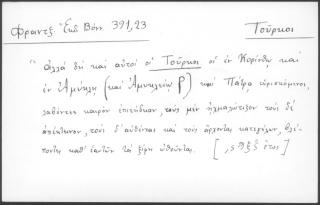 Φραντζ. Ἐκδ. Βόνν. 391,23
Τοῦρκοι
"ἀλλὰ δὴ καὶ αὐτοὶ οἱ Τοῦρκοι οἱ ἐν Κορίνθῳ καὶ
ἐν Ἀμύκλῃ (καὶ Ἀμυκλείῳ P) καὶ Πάτρᾳ εὑρισκόμενοι,
λαβόντες καιρὸν ἐπιτήδειον, τοὺς μὲν ᾐχμαλώτιζον τοὺς δὲ
ἀπέκτεινον, τοὺς δ'αὐθέντας καὶ τοὺς ἄρχοντας κατεῖχον, βλέ-
ποντες καθ' ἑαυτῶν τὰ ξίφη ὠθοῦντας. [ ͵ϛ ϡ ξ ξ ἔτος]